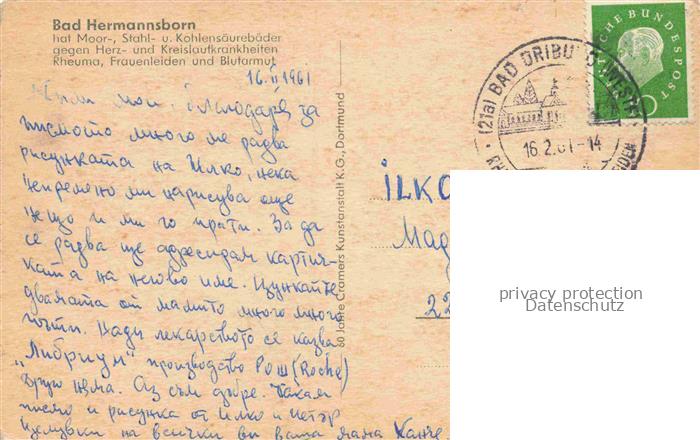 Bad Hermannsborn
hat Moor-, Stahl- u. Kohlensäurebäder
gegen Herz- und Kreislaufkrankheiten
Rheuma, Frauenleiden und Blutarmut
16.II 1961
мои, благодаря за
писмото много ме радва
рисунката на Илко, нека
непременно ми нарисува още
нещо и ми го прати. За да
се радва ще адресирам картич-
ката на негово име. Цункайте
двамата от мамито много много
пъти. Нади лекарството се казва
„Либриум" производство Рош (Roche)
друго няма. Аз съм добре. Чакам
писмо и рисунка от Илко и Петър
Целувки на всички ви ваша мама
60 Jahre Cramers Kunstanstalt K.G., Dortmund
(21a) BAD DRIBU
16.2.61-14
CHE BUNDESPOST
ILKO
Мад
22
privacy protection
Datenschutz